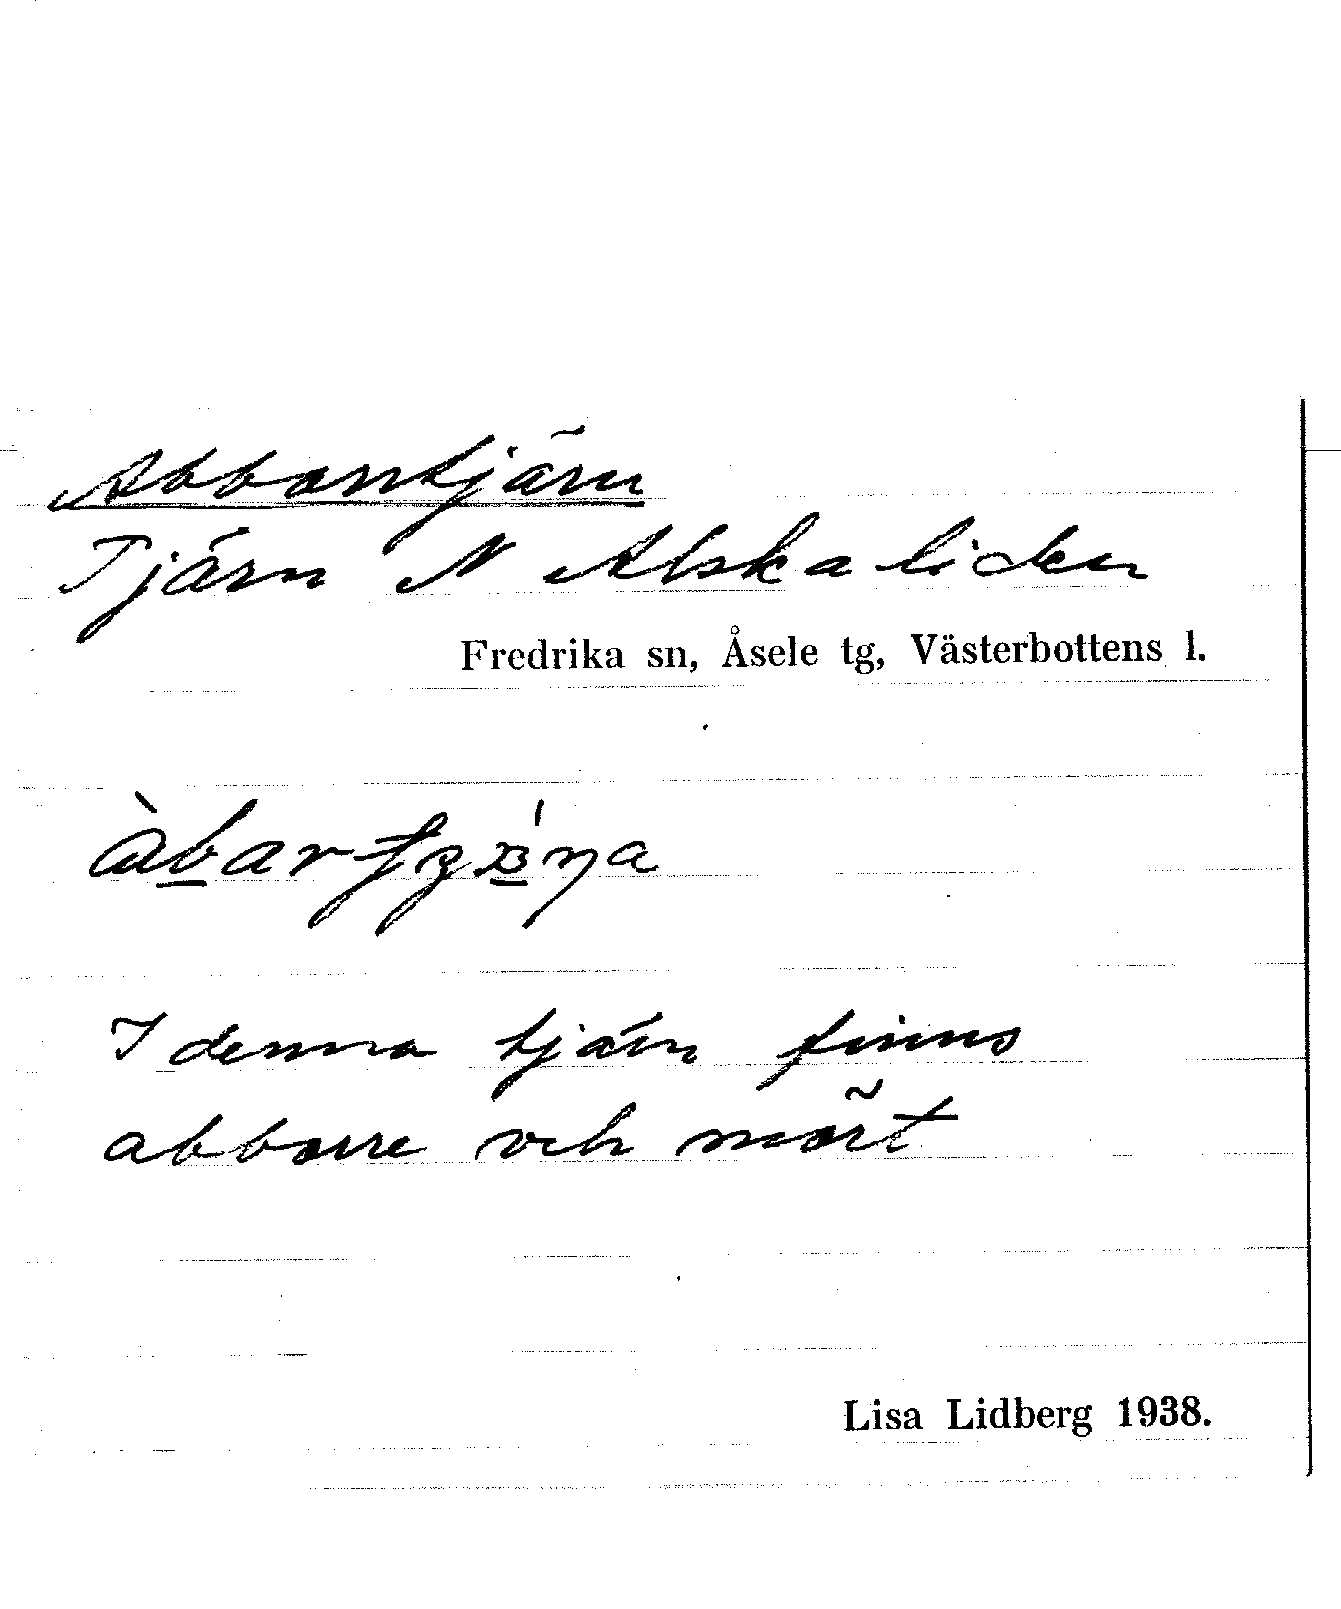 Abborrtjärn
Tjärn N Alskaliden
Fredrika sn, Åsele tg, Västerbottens l.
I denna tjärn finns
abborre och mört
Lisa Lidberg 1938.